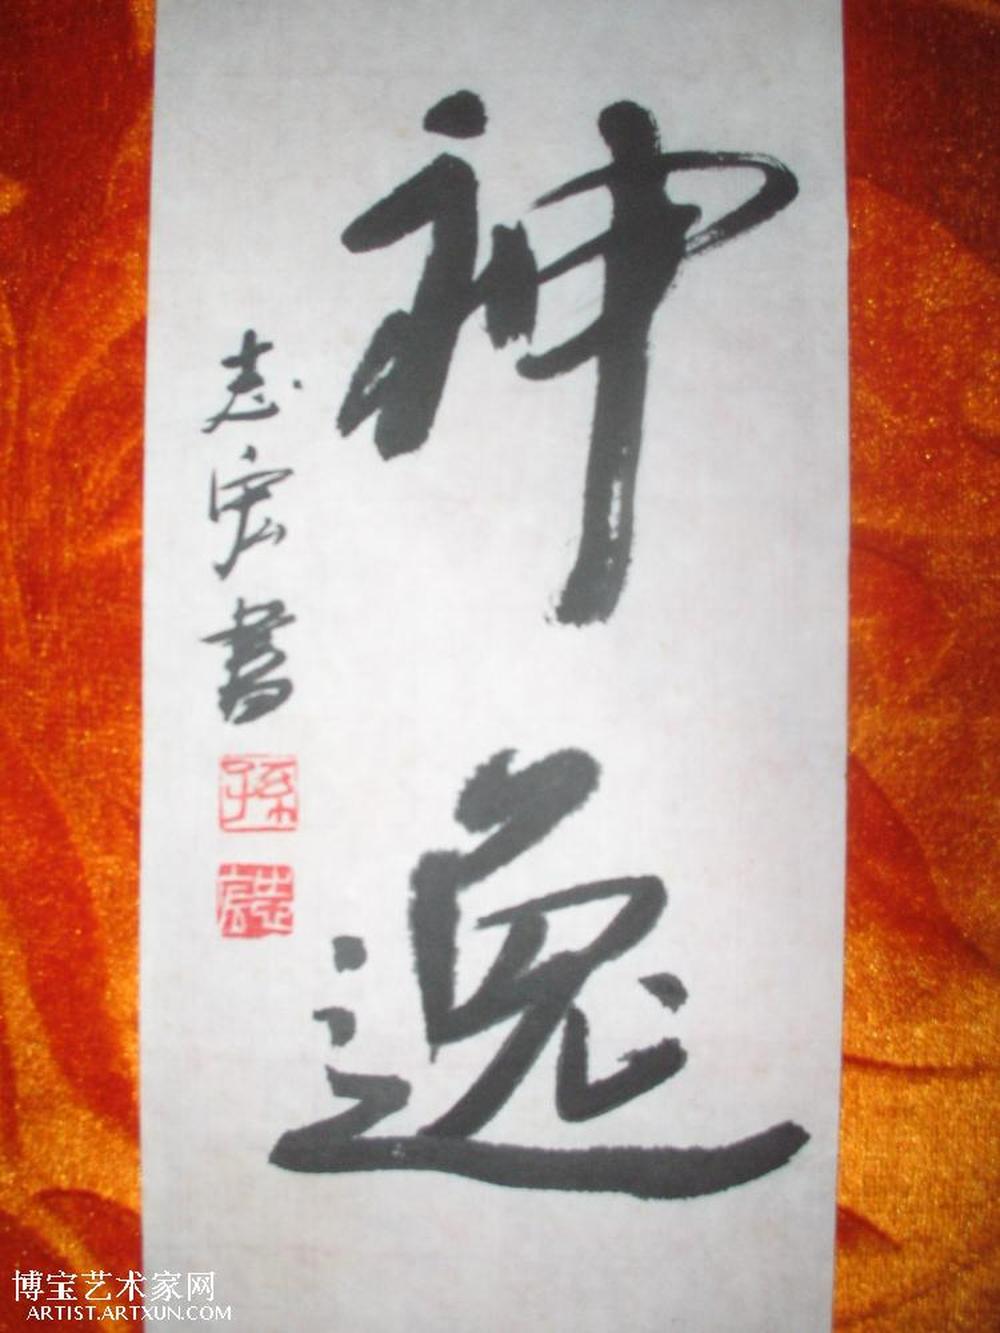 神逸
志宏書
孫
博宝艺术家网
ARTIST.ARTXUN.COM